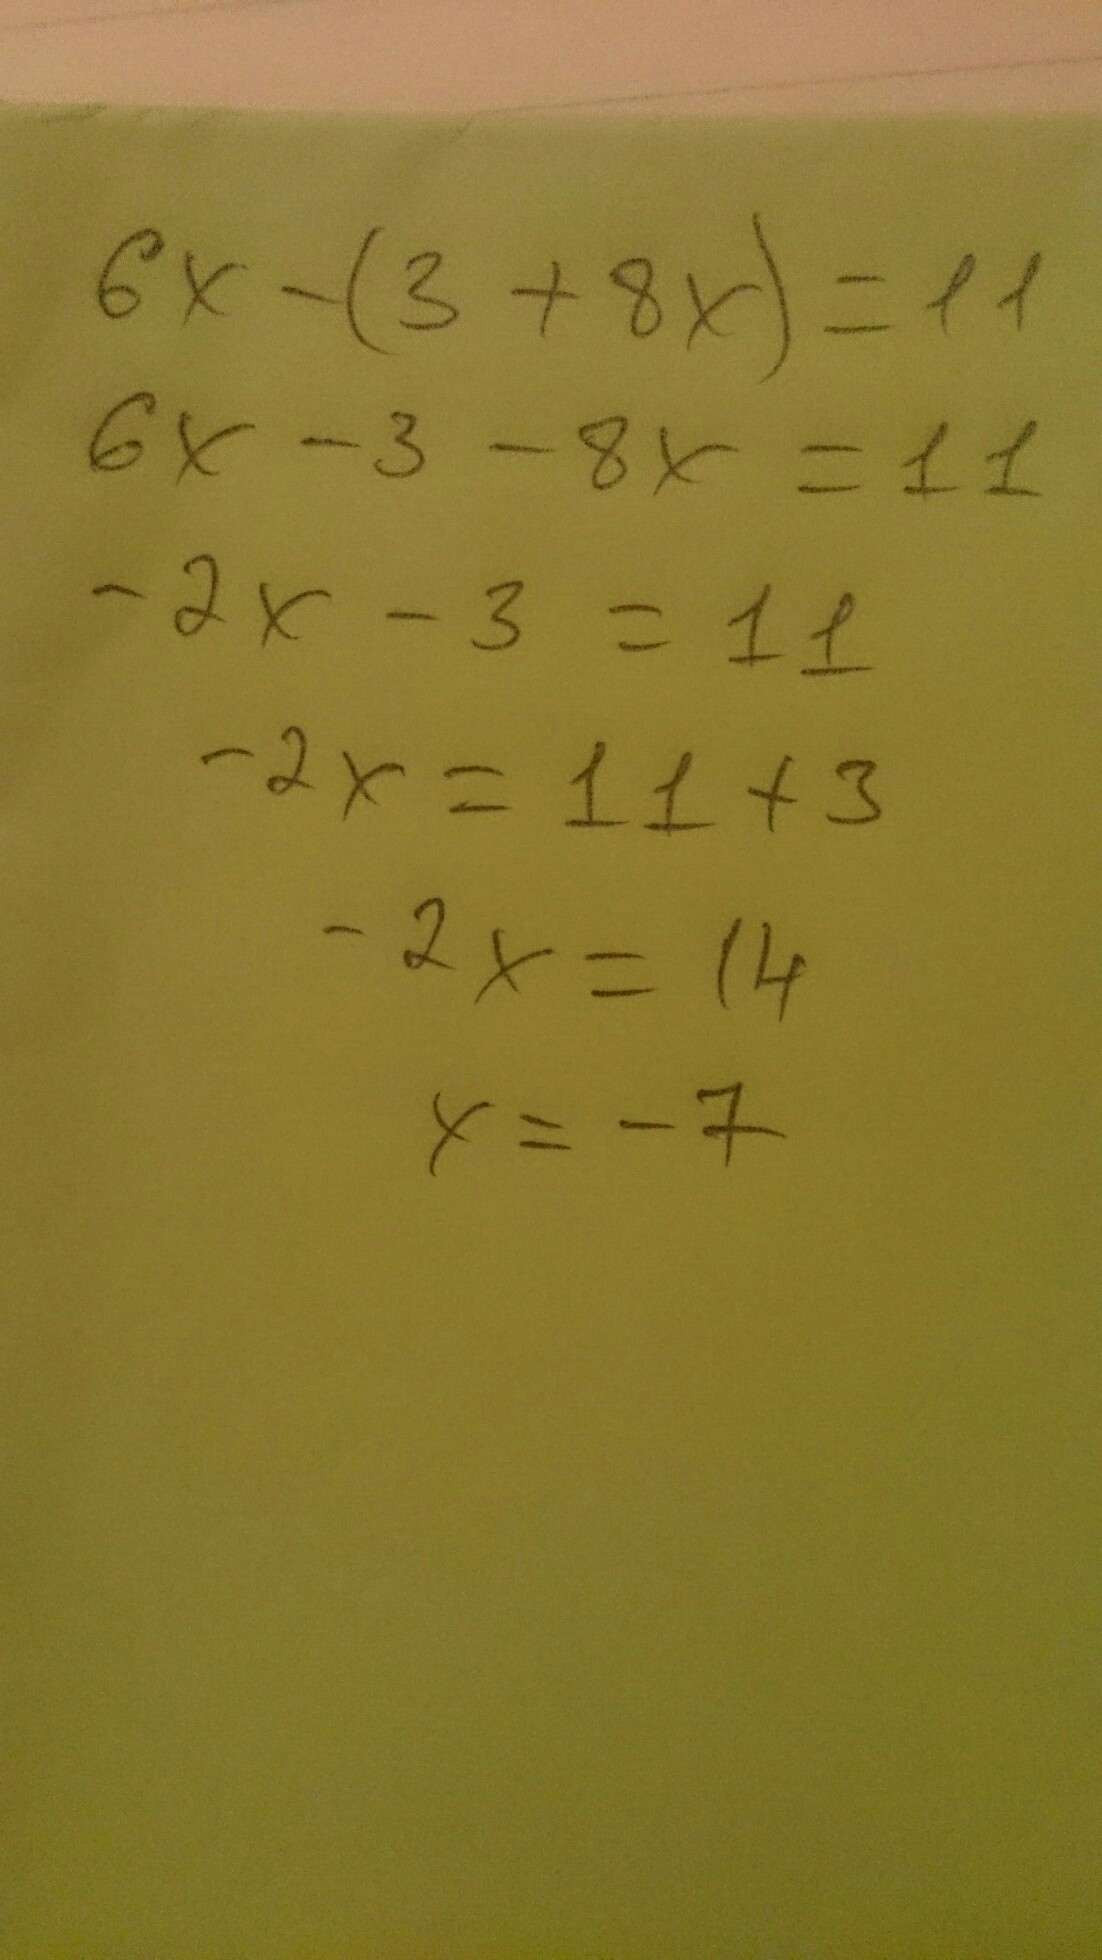 6x - (3 + 8x) = 11
6x - 3 - 8x = 11
-2x - 3 = 11
-2x = 11 + 3
-2x = 14
x = -7